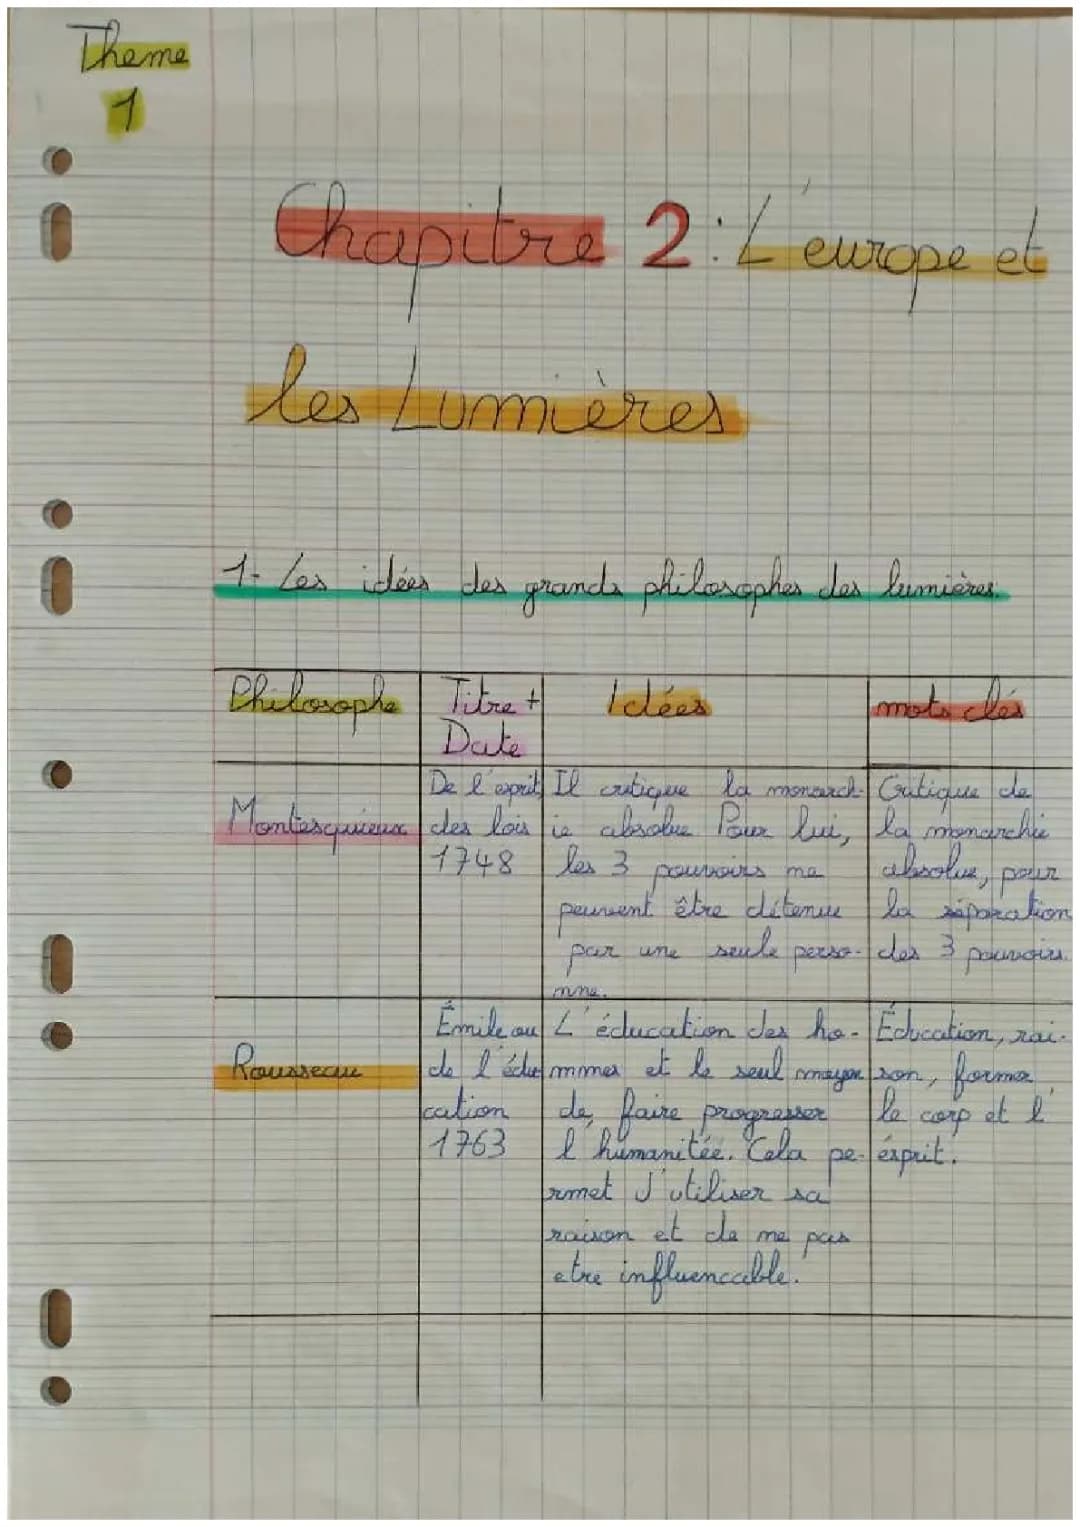 Theme
1
Chapitre 2: L'europe et
les Lumières
1- Les idées des grands philosophes des lumières.
Philosophe
Titre +
Date
Idées
mots clés
Montesquieux
De l'esprit
des lois
1748
Il critique la monarch-
ie absolue Pour lui,
les 3 pouvoirs ne
peuvent être détenue
par une seule perso-
nne.
Critique de
la monarchie
absolue, pour
la séparation
des 3 pouvoirs.
Rousseau
Émile ou
de l'édu
cation
1763
L'éducation des ho-
mmes et le seul moyen
de, faire progresser
l'humanitée. Cela pe-
rmet d'utiliser sa
raison et de ne pas
etre influencable.
Éducation, rai-
son, former
le corp et l'
ésprit.